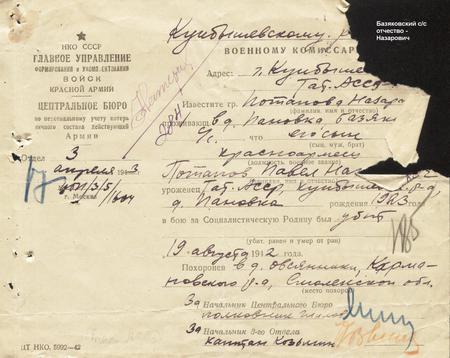 Базяковский с/с
отчество -
Назарович
Куйбышевскому
ВОЕННОМУ КОМИССАР
НКО СССР
ГЛАВНОЕ УПРАВЛЕНИЕ
ФОРМИРОВАНИЯ и УКОМПЛЕКТОВАНИЯ
ВОЙСК
КРАСНОЙ АРМИИ
ЦЕНТРАЛЬНОЕ БЮРО
по персональному учету потерь
личного состава действующей
Армии
Отдел 3
3 апреля 1943
г. Москва
Адрес: г. Куйбышев
Тат. АССР
Известите гр. Потапова Назара
(фамилия, имя и отчество)
проживающ. в д. Пановка Базяк
что его сын
(сын, муж, брат)
красноармеец
(должность, военное звание)
Потапов Павел Наз
уроженец Тат. АССР Куйбышев р-а,
д. Пановка рождения 1923
в бою за Социалистическую Родину был убит
(убит, ранен и умер от ран)
19 августа 1942 г.
Похоронен в д. Овсянники, Карма-
новского р-а, Смоленской обл.
(место похорон)
За Начальник Центрального Бюро
полковник
За Начальник 3-го Отдела
капитан Козьмин
ЦТ НКО. 5992—42